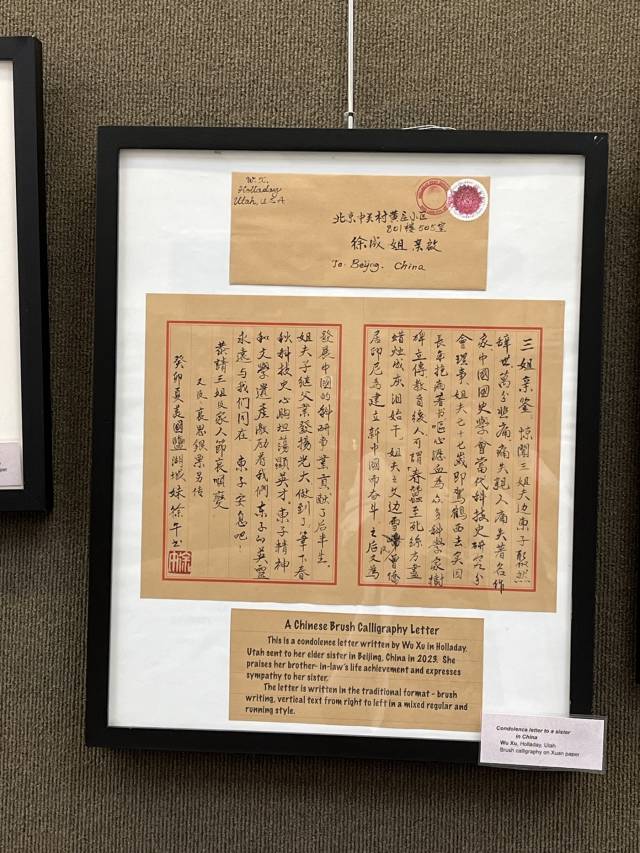 W. X.
Holladay
Utah, U S A
北京中关村黄庄小区
801楼505室
徐成姐 亲啟
To: Beijing, China
三姐亲鉴 惊闻三姐夫边東子驟然
辞世萬分悲痛痛失親人痛失著名作
家中國國史學會當代科技史研究分
會理事、姐夫七十七歲即駕鶴西去実因
長年抱病著书嘔心瀝血為众多科學家樹
碑立傳教育後人可謂春蠶至死絲方盡
蜡炬成灰泪始干。姐夫之父边雪 曾侨
居印尼為建立新中國而奋斗 之后又為
發展中國的科研事業貢献了后半生。
姐夫子继父業發揚光大做到了筆下春
秋科技史心胸坦荡顯英才。東子精神
和文學遺産激励着我們 東子的英靈
永遠与我們同在 東子安息吧！
恭請三姐及家人節哀順變
又及：哀思银票另传
癸卯夏美國鹽湖城 妹 徐午书
A Chinese Brush Calligraphy Letter
This is a condolence letter written by Wu Xu in Holladay,
Utah sent to her elder sister in Beijing, China in 2023. She
praises her brother-in-law's life achievement and expresses
sympathy to her sister.
The letter is written in the traditional format - brush
writing, vertical text from right to left in a mixed regular and
running style.
Condolence letter to a sister
in China
Wu Xu, Holladay, Utah
Brush calligraphy on Xuan paper